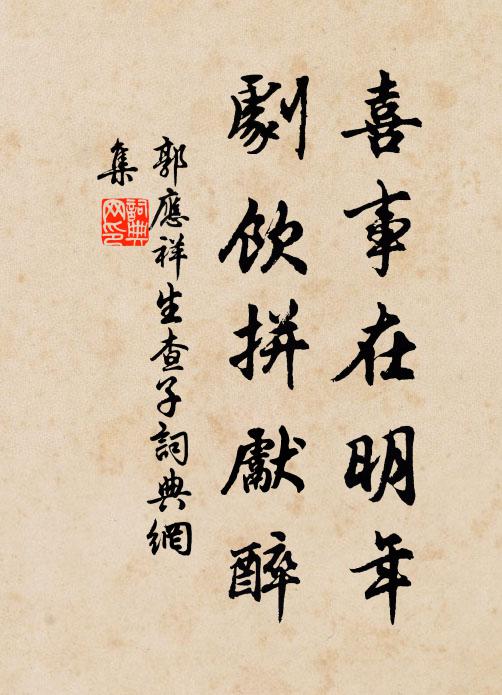 喜事在明年
劇飲拼獻醉
郭應祥生查子詞典網
集
詞典
网印